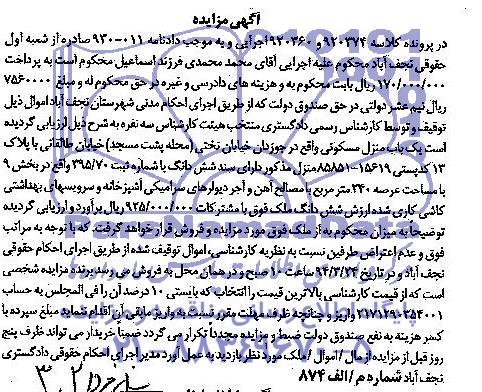 آگهی مزایده
در پرونده کلاسه ۹۲۰۳۷۴ و ۹۲۰۳۶۰ اجرایی و به موجب دادنامه ۰۱۱-۹۳۰ صادره از شعبه اول
حقوقی نجف آباد محکوم علیه اجرایی آقای محمد محمدی فرزند اسماعیل محکوم است به پرداخت
۱۷۰/۰۰۰/۰۰۰ ریال بابت محکوم به و هزینه های دادرسی و غیره در حق محکوم له و مبلغ ۷۵۶۰۰۰۰
ریال نیم عشر دولتی در حق صندوق دولت که از طریق اجرای احکام مدنی شهرستان نجف آباد اموال ذیل
توقیف و توسط کارشناس رسمی دادگستری منتخب هیئت کارشناس سه نفره به شرح ذیل ارزیابی گردیده
است یک باب منزل مسکونی واقع در جوزدان خیابان نختی (محله پشت مسجد) خیابان طالقانی با پلاک
۱۳ کدپستی ۱۵۶۱۹-۸۵۸۵۱ منزل مذکور دارای سند شش دانگ با شماره ثبت ۳۹۵/۷۰ واقع در بخش ۹
با مساحت عرصه ۲۴۰ متر مربع با مصالح آهن و آجر دیوارهای سرامیکی آشپزخانه و سرویسهای بهداشتی
کاشی کاری شده ارزش شش دانگ ملک فوق با مشترکات ۹۲۵/۰۰۰/۰۰۰ ریال برآورد و ارزیابی گردیده
توضیحا به میزان محکوم به از ملک فوق مورد مزایده و فروش قرار خواهد گرفت که با توجه به مراتب
فوق و عدم اعتراض طرفین نسبت به نظریه کارشناسی، اموال توقیف شده از طریق اجرای احکام حقوقی
نجف آباد و در تاریخ ۹۴/۳/۲۴ ساعت ۱۰ صبح و در همان محل به فروش می رسد برنده مزایده شخصی
است که از قیمت کارشناسی بالاترین قیمت را انتخاب که بایستی ۱۰ درصد آن را فی المجلس به حساب
۲۱۷۱۲۹۰۳۵۴۰۰۱ واریز و چنانچه ظرف مهلت مقرر نسبت به واریز مابقی آن اقدام ننماید مبلغ سپرده با
کسر هزینه به نفع صندوق دولت ضبط و مزایده مجددا تکرار می گردد ضمنا خریدار می تواند ظرف پنج
روز قبل از مزایده از مال / اموال / ملک مورد نظر بازدید به عمل آورد مدیر اجرای احکام حقوقی دادگستری
نجف آباد شماره م/الف ۸۷۴